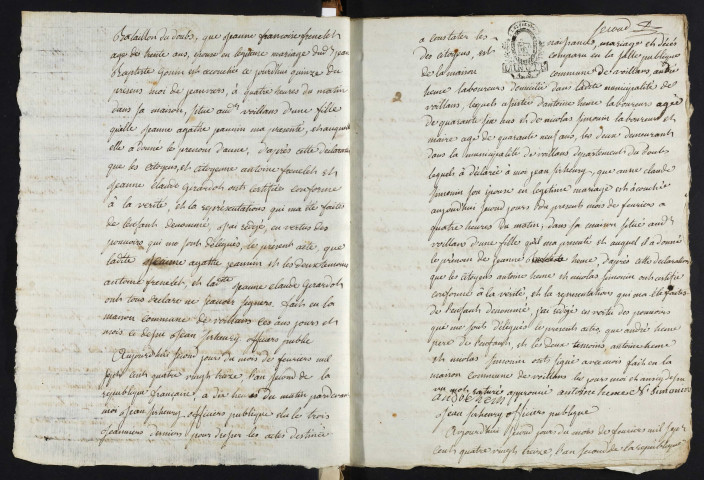 Bataillon du doubs, que jeanne francoise frenelet
age de trente ans, epouse en legitime mariage dud jean
Baptiste est accouchée ce jourd'hui quinze du
presens moi de janviers, à quatre heures du matin
dans sa maison, situe aud voillans d'une fille
qu'elle jeanne agathe jeannin ma presenté, et auquel
elle a donné le prenom d'anne, d'apres cette declaration
que les citoyens, et citoyenne antoine frenelet et
jeanne claude Girardot ont certifie conforme
à la verité, et la representations qui ma été faites
de l'enfant denommé, j'ai redigé, en vertus des
pouvoirs qui me sont delegués, le present acte, que
ladite jeanne agatte jeannin et les deux temoins
antoine frenelet, et ladite jeanne claude Girardot
ont tous declare ne scavoir signers. fait en la
maison commune de voillans les ans jours et
mois ce dessus jean officiers public
Aujourdhui second jour du mois de fevriers mil
sept cent quatre vingt treize l'an second de la
republique française, a dix heures du matin pardevans
moi jean officiers publique elu le trois
janviers derniers pour dresser les actes destinés
second
a constater les naissances, mariage et décés
des citoyens, est comparu en la salle publique
de la maison commune de voillans andré
heme laboureurs domicilié dans ladite municipalité de
voillans, lequels assisté d'antoine heme laboureurs agée
de quarante six ans et de nicolas simonin laboureurs et
maire agé de quarante neuf ans, les deux demeurant
dans la municipalité de voillans departement du Doubs
lequels à déclarée à moi jean que anne claude
simonin son epouse en legitime mariage est acoutée
aujourdhui second jours du presents mois de fevriers a
quatre heures du matin, dans sa maison situé aud
voillans d'une fille qu'il ma presenté et auquel il a donné
le prénom de jeanne heme, d'après cette declaration
que les citoyens antoine heme et nicolas simonin ont certifie
conforme à la vérité, et la representations qui ma été faites
de l'enfants denommé, j'ai redigé en vertu des pouvoirs
que me sont délegués le presents actes, que andré heme
pere de l'enfants, et les deux temoins, antoine heme
et nicolas simonin ont signé avec moi fait en la
maison commune de voillans les jour mois et an ci dessus
un mot raturé approuvé antoine heme N. simonin
andre heme
jean officiers publique
Aujourdhui second jours du mois de fevriers mil sept
cent quatre vingt treize, l'an second de la republique